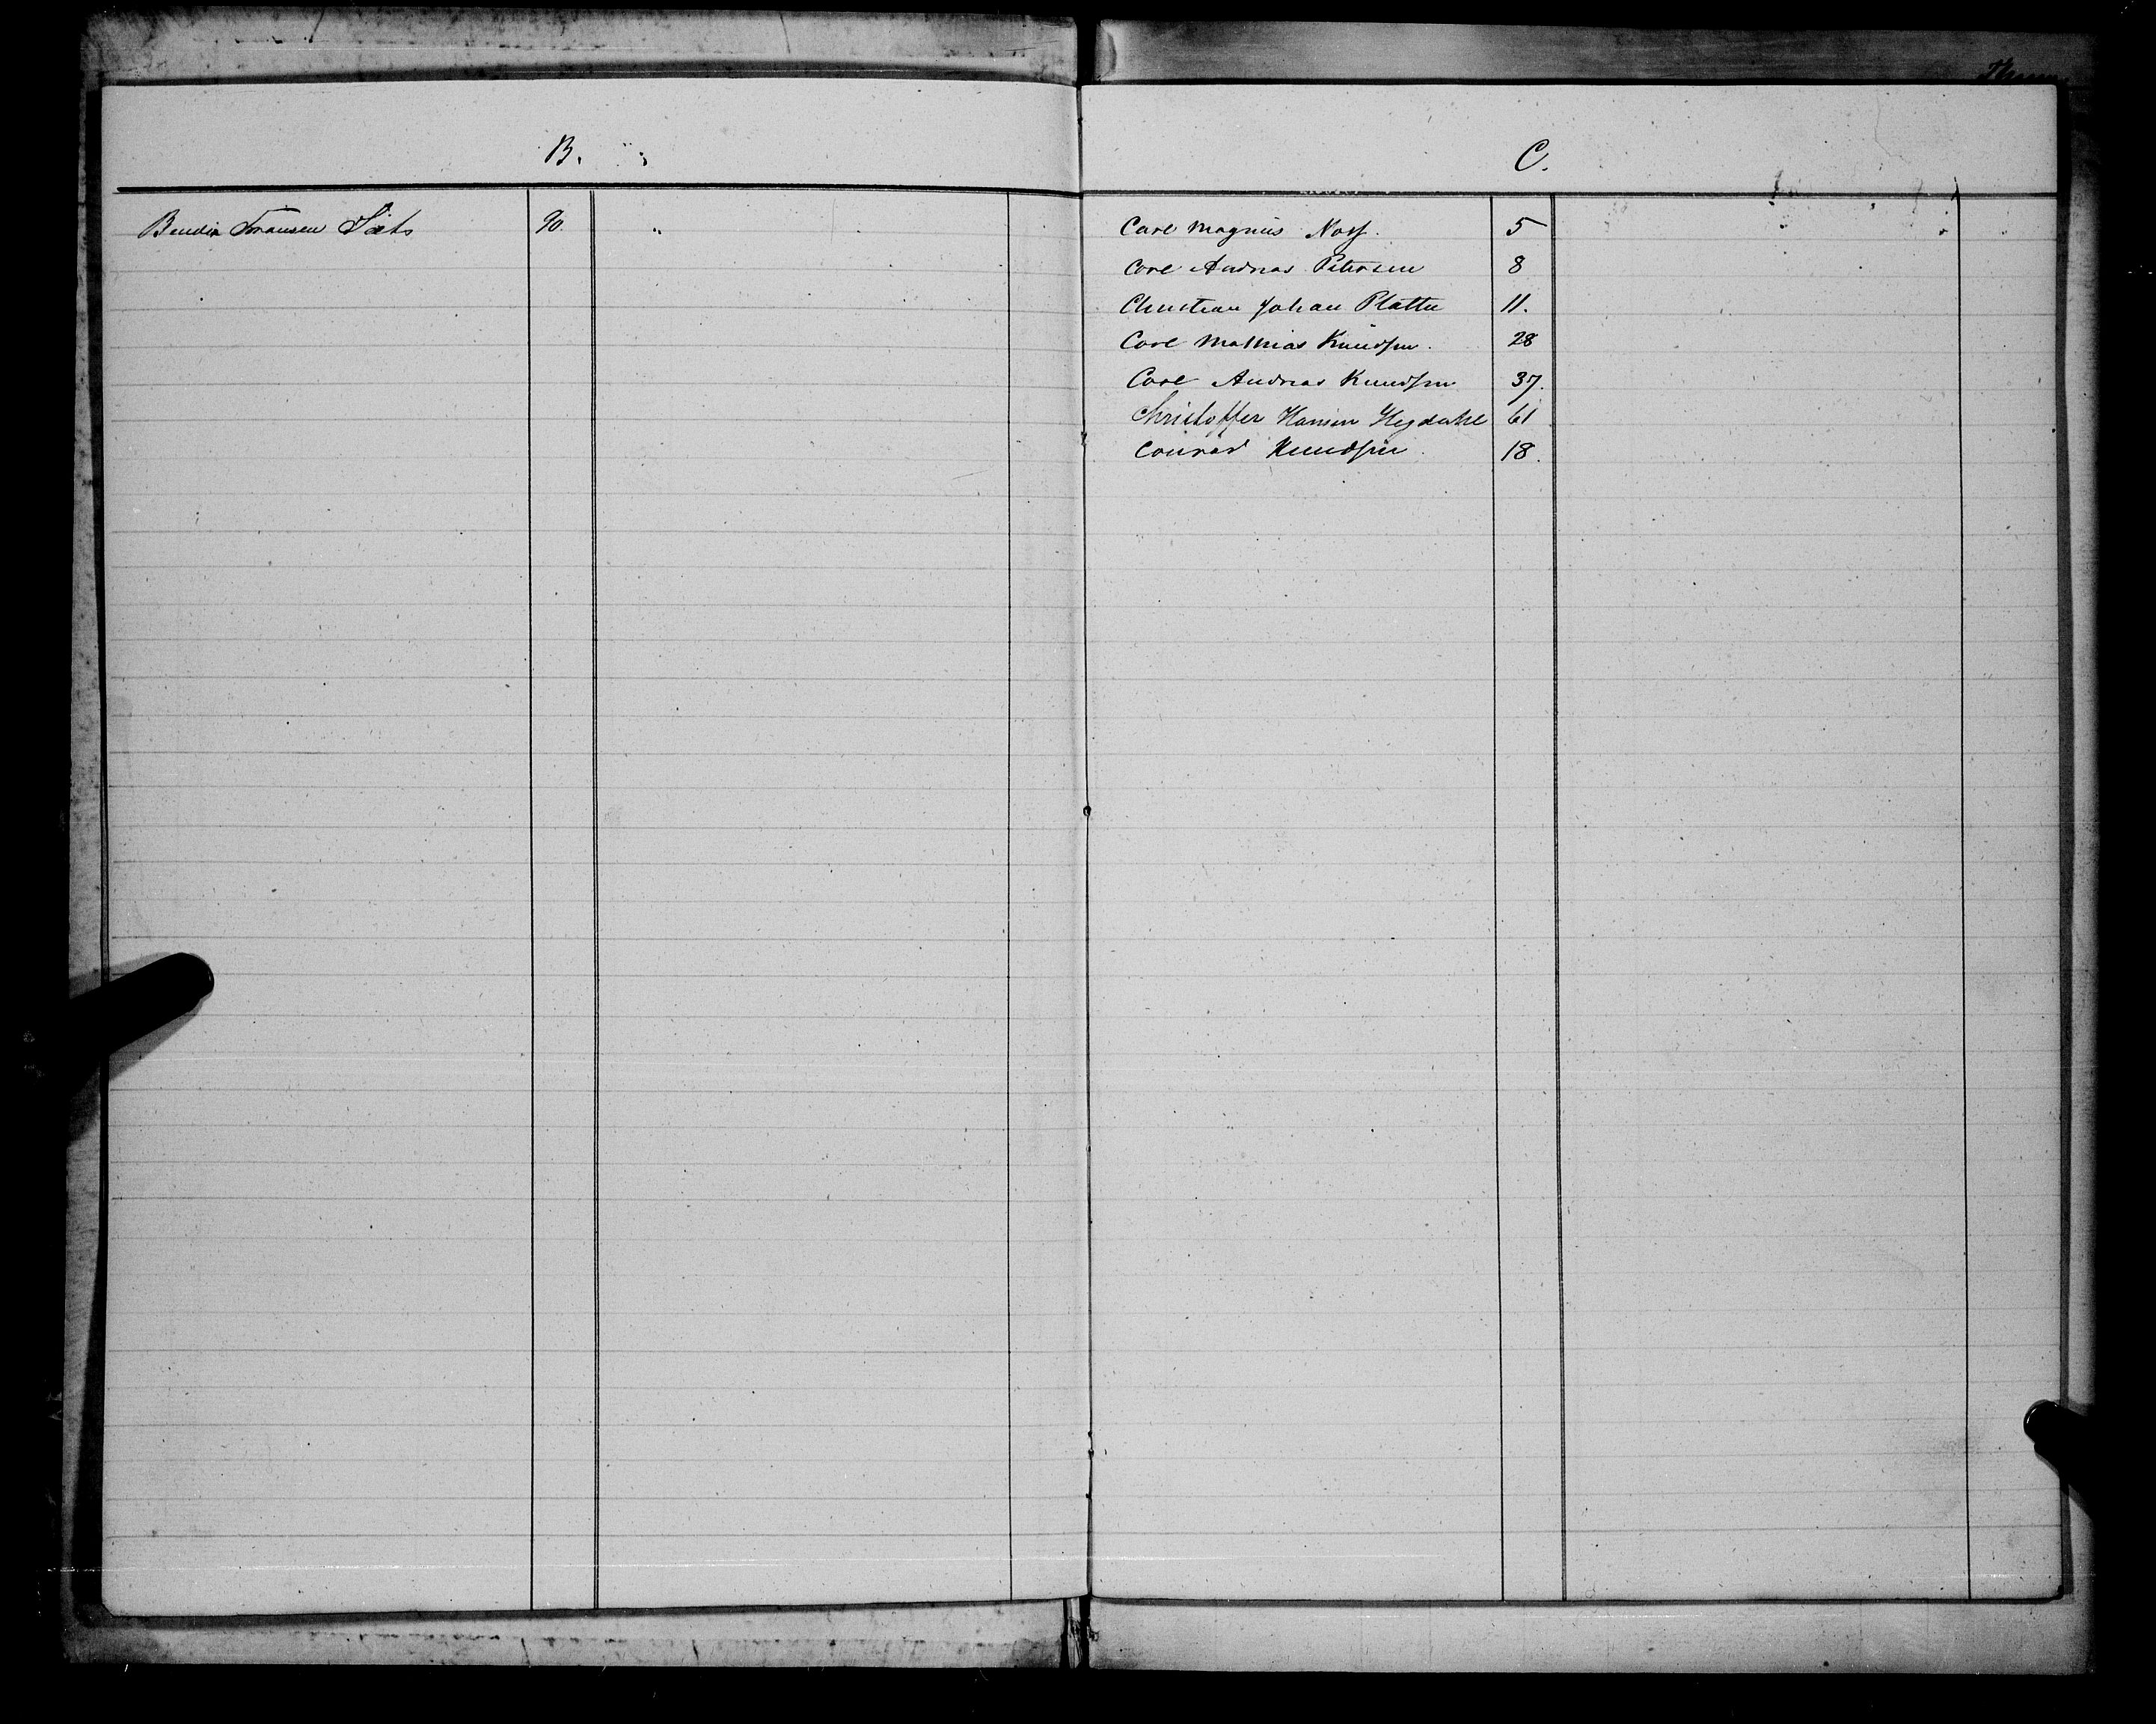 B.
Bendix Fransen Sæts 90.
C.
Carl Magnus Noss. 5
Carl Andreas Petersen 8
Christian Johan Platou 11.
Carl Mathias Knudsen. 28
Carl Andreas Knudsen 37.
Christoffer Hansen Hegdahl 61
Conrad Knudsen. 18.